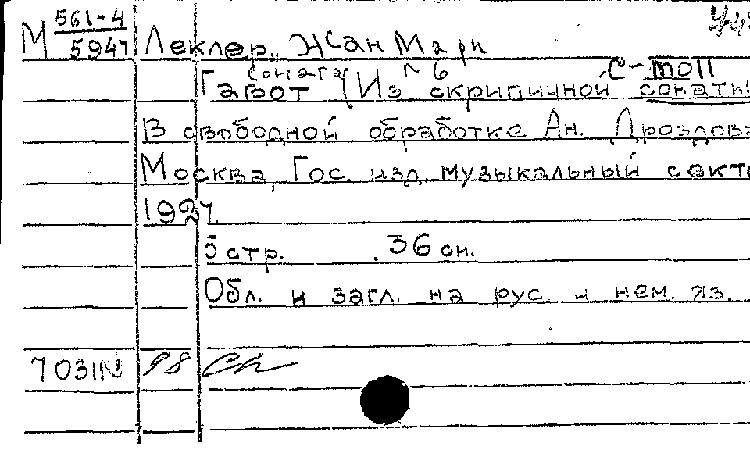 М 561-4/5947 Леклер, Жан Мари
Соната № 6 c-moll
Гавот (Из скрипичной сонаты
В свободной обработке Ан. Дроздова
Москва, Гос. изд. музыкальный сект
1927.
5 стр. 36 см.
Обл. и загл. на рус. и нем. яз.
7031N 98